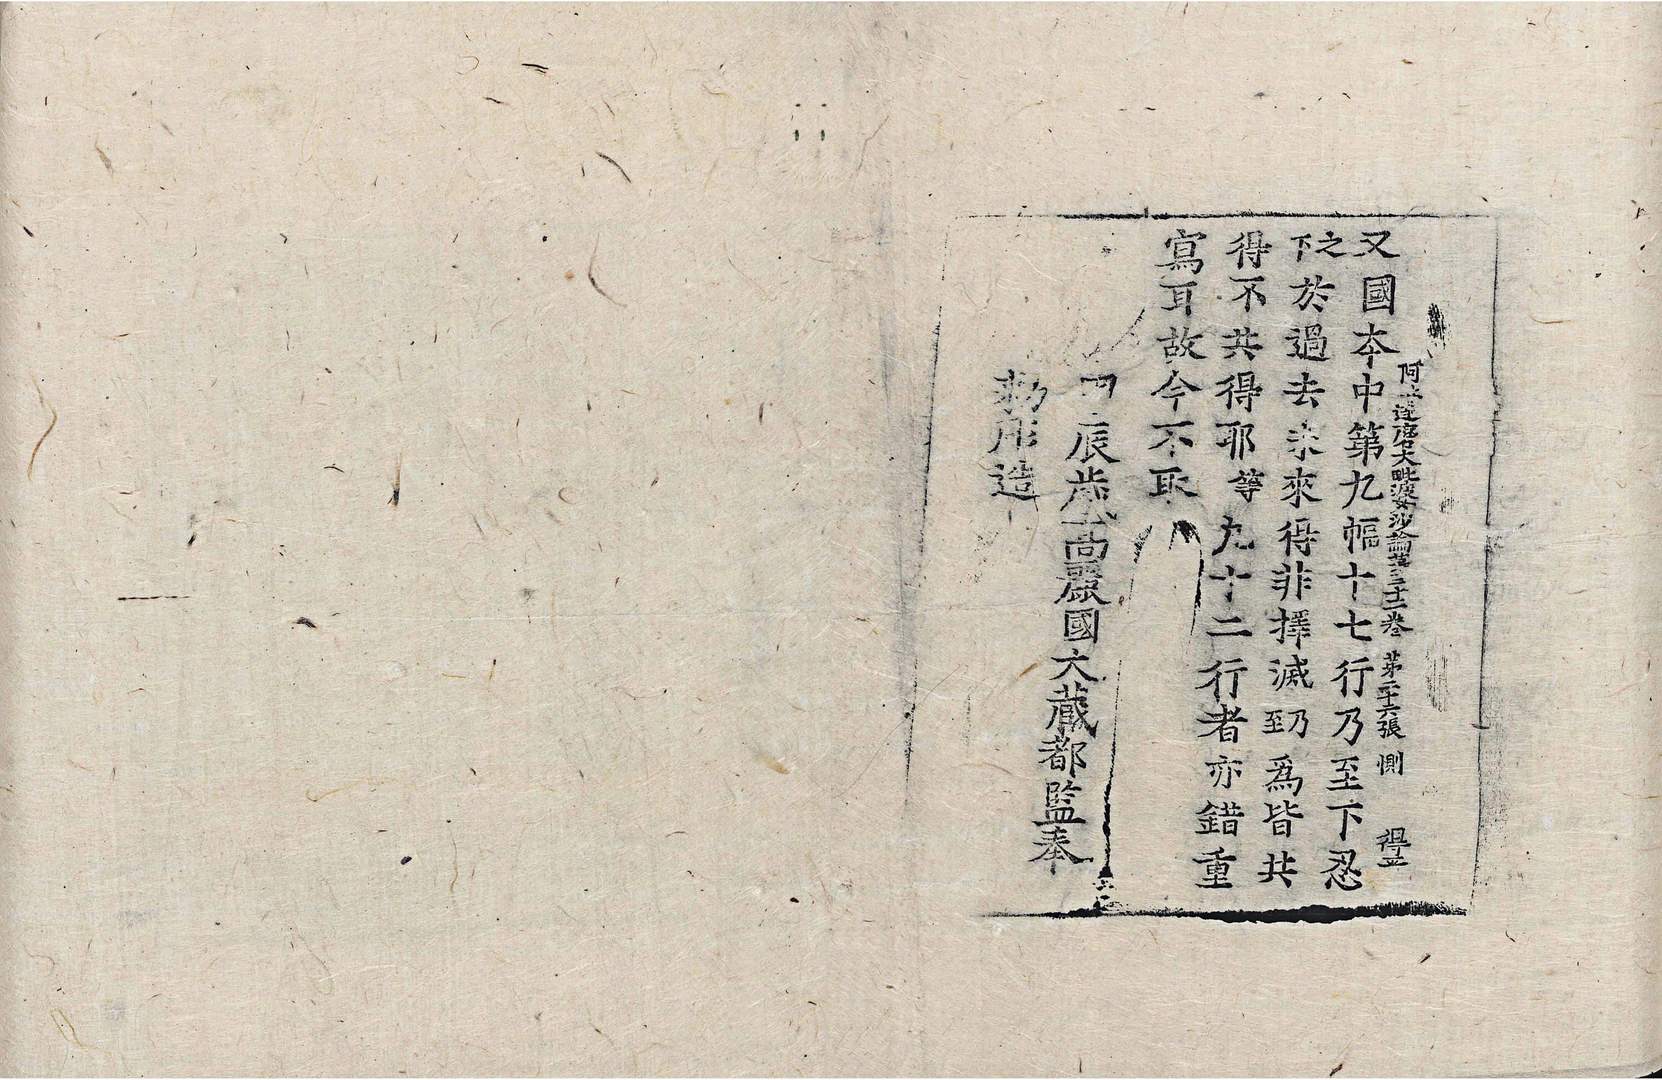 又國本中第九幅十七行乃至下忍
之下於過去未來得非擇滅乃至爲皆共
得不共得耶等九十二行者亦錯重
寫耳故今不取
阿毗達磨大毗婆沙論第三十二卷 第二十六張 惻 得平
甲辰歲高麗國大藏都監奉
勅彫造